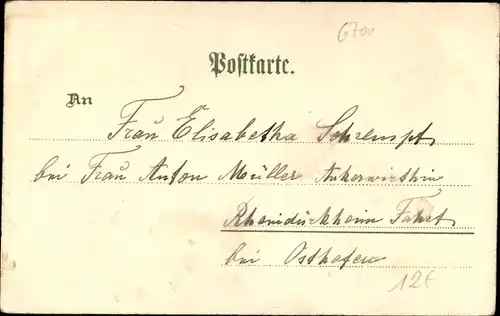 6700
Postkarte.
An
Frau Elisabetha Schrempf
bei Frau Anton Müller Ankerwirthin
Rheindürkheim Fahrt
bei Osthofen
12€